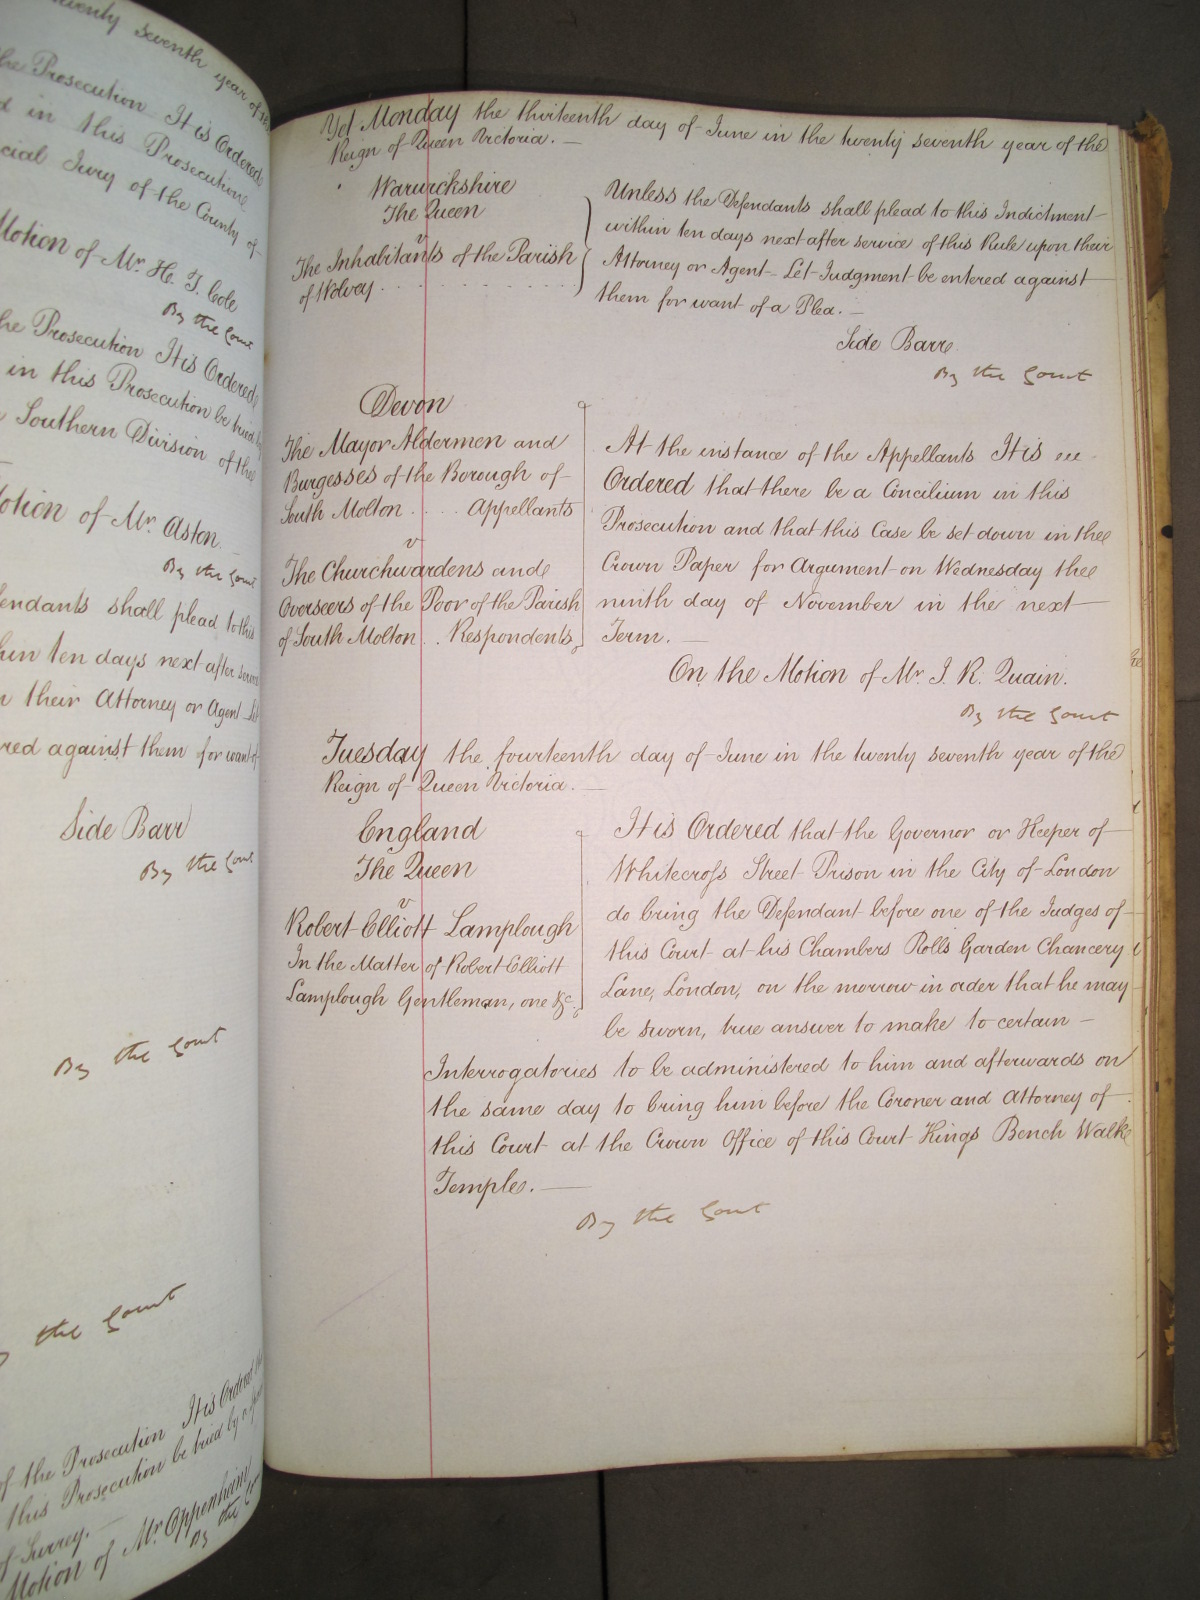 twenty seventh year of the
the Prosecution It is Ordered
in this Prosecution
cial Jury of the County of
Motion of Mr. H. T. Cole
By the Court
the Prosecution It is Ordered
in this Prosecution be tried by
Southern Division of the
Motion of Mr. Aston.
By the Court
fendants shall plead to this
ten days next after service
their Attorney or Agent Let
red against them for want of
Side Barr
By the Court
By the Court
the Court
of the Prosecution It is Ordered
this Prosecution be tried by a
of Surrey. —
Motion of Mr. Oppenheim
By the
Yet Monday the thirteenth day of June in the twenty seventh year of the
Reign of Queen Victoria. —
Warwickshire
The Queen
v
The Inhabitants of the Parish
of Wolvey
Unless the Defendants shall plead to this Indictment
within ten days next after service of this Rule upon their
Attorney or Agent Let Judgment be entered against
them for want of a Plea. —
Side Barr
By the Court
Devon
The Mayor Aldermen and
Burgesses of the Borough of
South Molton .... Appellants
v
The Churchwardens and
Overseers of the Poor of the Parish
of South Molton .. Respondents
At the instance of the Appellants It is
Ordered that there be a Concilium in this
Prosecution and that this Case be set down in the
Crown Paper for Argument on Wednesday the
ninth day of November in the next
Term. —
On the Motion of Mr. J. R. Quain.
By the Court
Tuesday the fourteenth day of June in the twenty seventh year of the
Reign of Queen Victoria. —
England
The Queen
v
Robert Elliott Lamplough
In the Matter of Robert Elliott
Lamplough Gentleman, one &c.
It is Ordered that the Governor or Keeper of
Whitecross Street Prison in the City of London
do bring the Defendant before one of the Judges of
this Court at his Chambers Rolls Garden Chancery
Lane, London, on the morrow in order that he may
be sworn, true answer to make to certain —
Interrogatories to be administered to him and afterwards on
the same day to bring him before the Coroner and Attorney of
this Court at the Crown Office of this Court Kings Bench Walk
Temple. —
By the Court